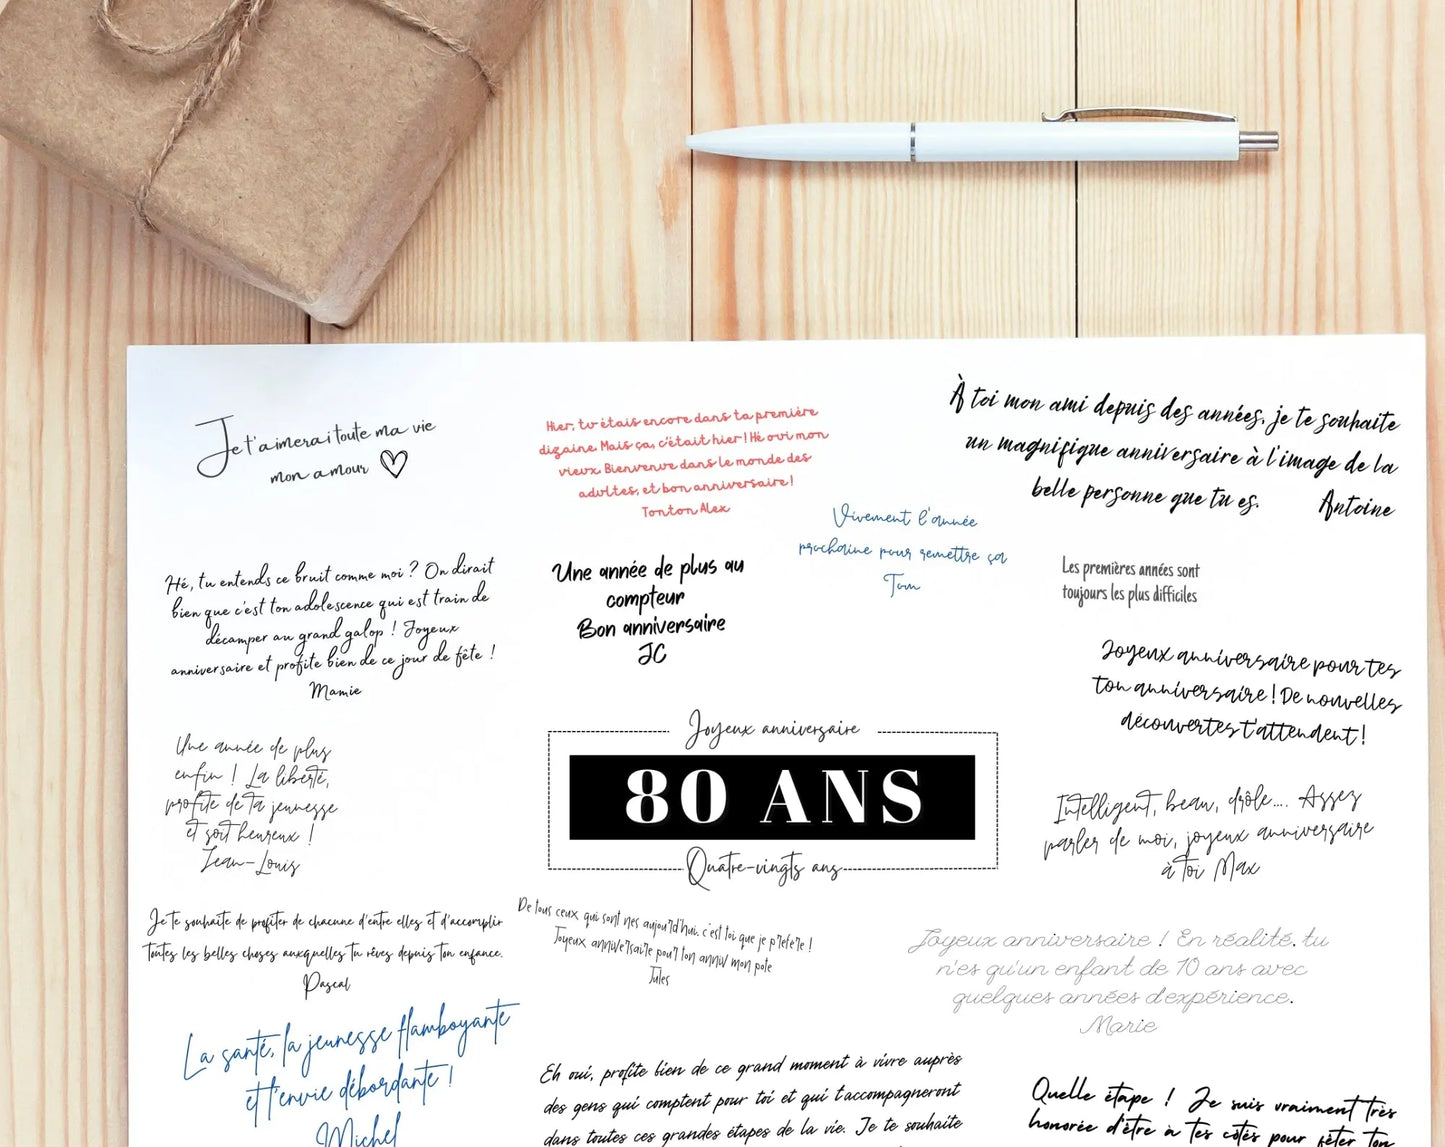 Je t'aimerai toute ma vie
mon amour
Hier, tu étais encore dans ta première
dizaine. Mais ça, c'était hier ! Hé oui mon
vieux. Bienvenue dans le monde des
adultes, et bon anniversaire !
Tonton Alex
À toi mon ami depuis des années, je te souhaite
un magnifique anniversaire à l'image de la
belle personne que tu es. Antoine
Vivement l'année
prochaine pour remettre ça
Tom
Hé, tu entends ce bruit comme moi ? On dirait
bien que c'est ton adolescence qui est train de
décamper au grand galop ! Joyeux
anniversaire et profite bien de ce jour de fête !
Mamie
Une année de plus au
compteur
Bon anniversaire
JC
Les premières années sont
toujours les plus difficiles
Joyeux anniversaire pour tes
ton anniversaire ! De nouvelles
découvertes t'attendent !
Une année de plus
enfin ! La liberté,
profite de ta jeunesse
et soit heureux !
Jean-Louis
Joyeux anniversaire
80 ANS
Quatre-vingts ans
Intelligent, beau, drôle.... Assez
parler de moi, joyeux anniversaire
à toi Max
Je te souhaite de profiter de chacune d'entre elles et d'accomplir
toutes les belles choses auxquelles tu rêves depuis ton enfance.
Pascal
De tous ceux qui sont nés aujourd'hui. c'est toi que je préfère !
Joyeux anniversaire pour ton anniv mon pote
Jules
Joyeux anniversaire ! En réalité. tu
n'es qu'un enfant de 10 ans avec
quelques années d'expérience.
Marie
La santé, la jeunesse flamboyante
et l'envie débordante !
Michel
Eh oui, profite bien de ce grand moment à vivre auprès
des gens qui comptent pour toi et qui t'accompagneront
dans toutes ces grandes étapes de la vie. Je te souhaite
Quelle étape ! Je suis vraiment très
honorée d'être à tes côtés pour fêter ton